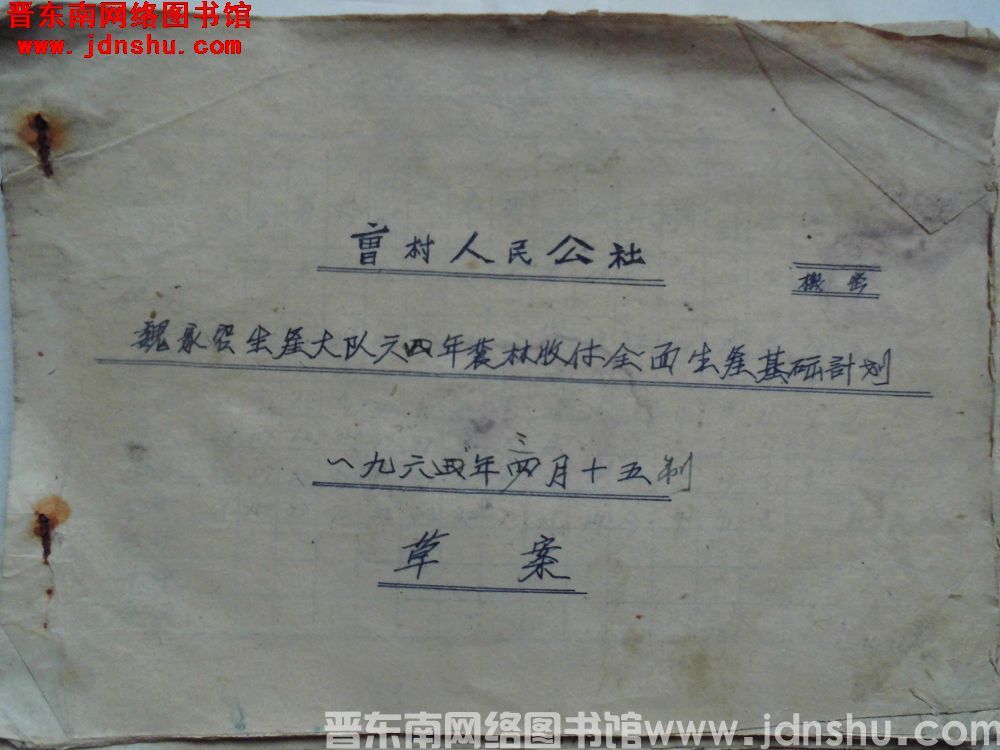 晋东南网络图书馆
www.jdnshu.com
曹村人民公社
機密
魏家 生產大队六四年農林收付全面生產基础計划
一九六四年三月十五制
草案
晋东南网络图书馆www.jdnshu.com